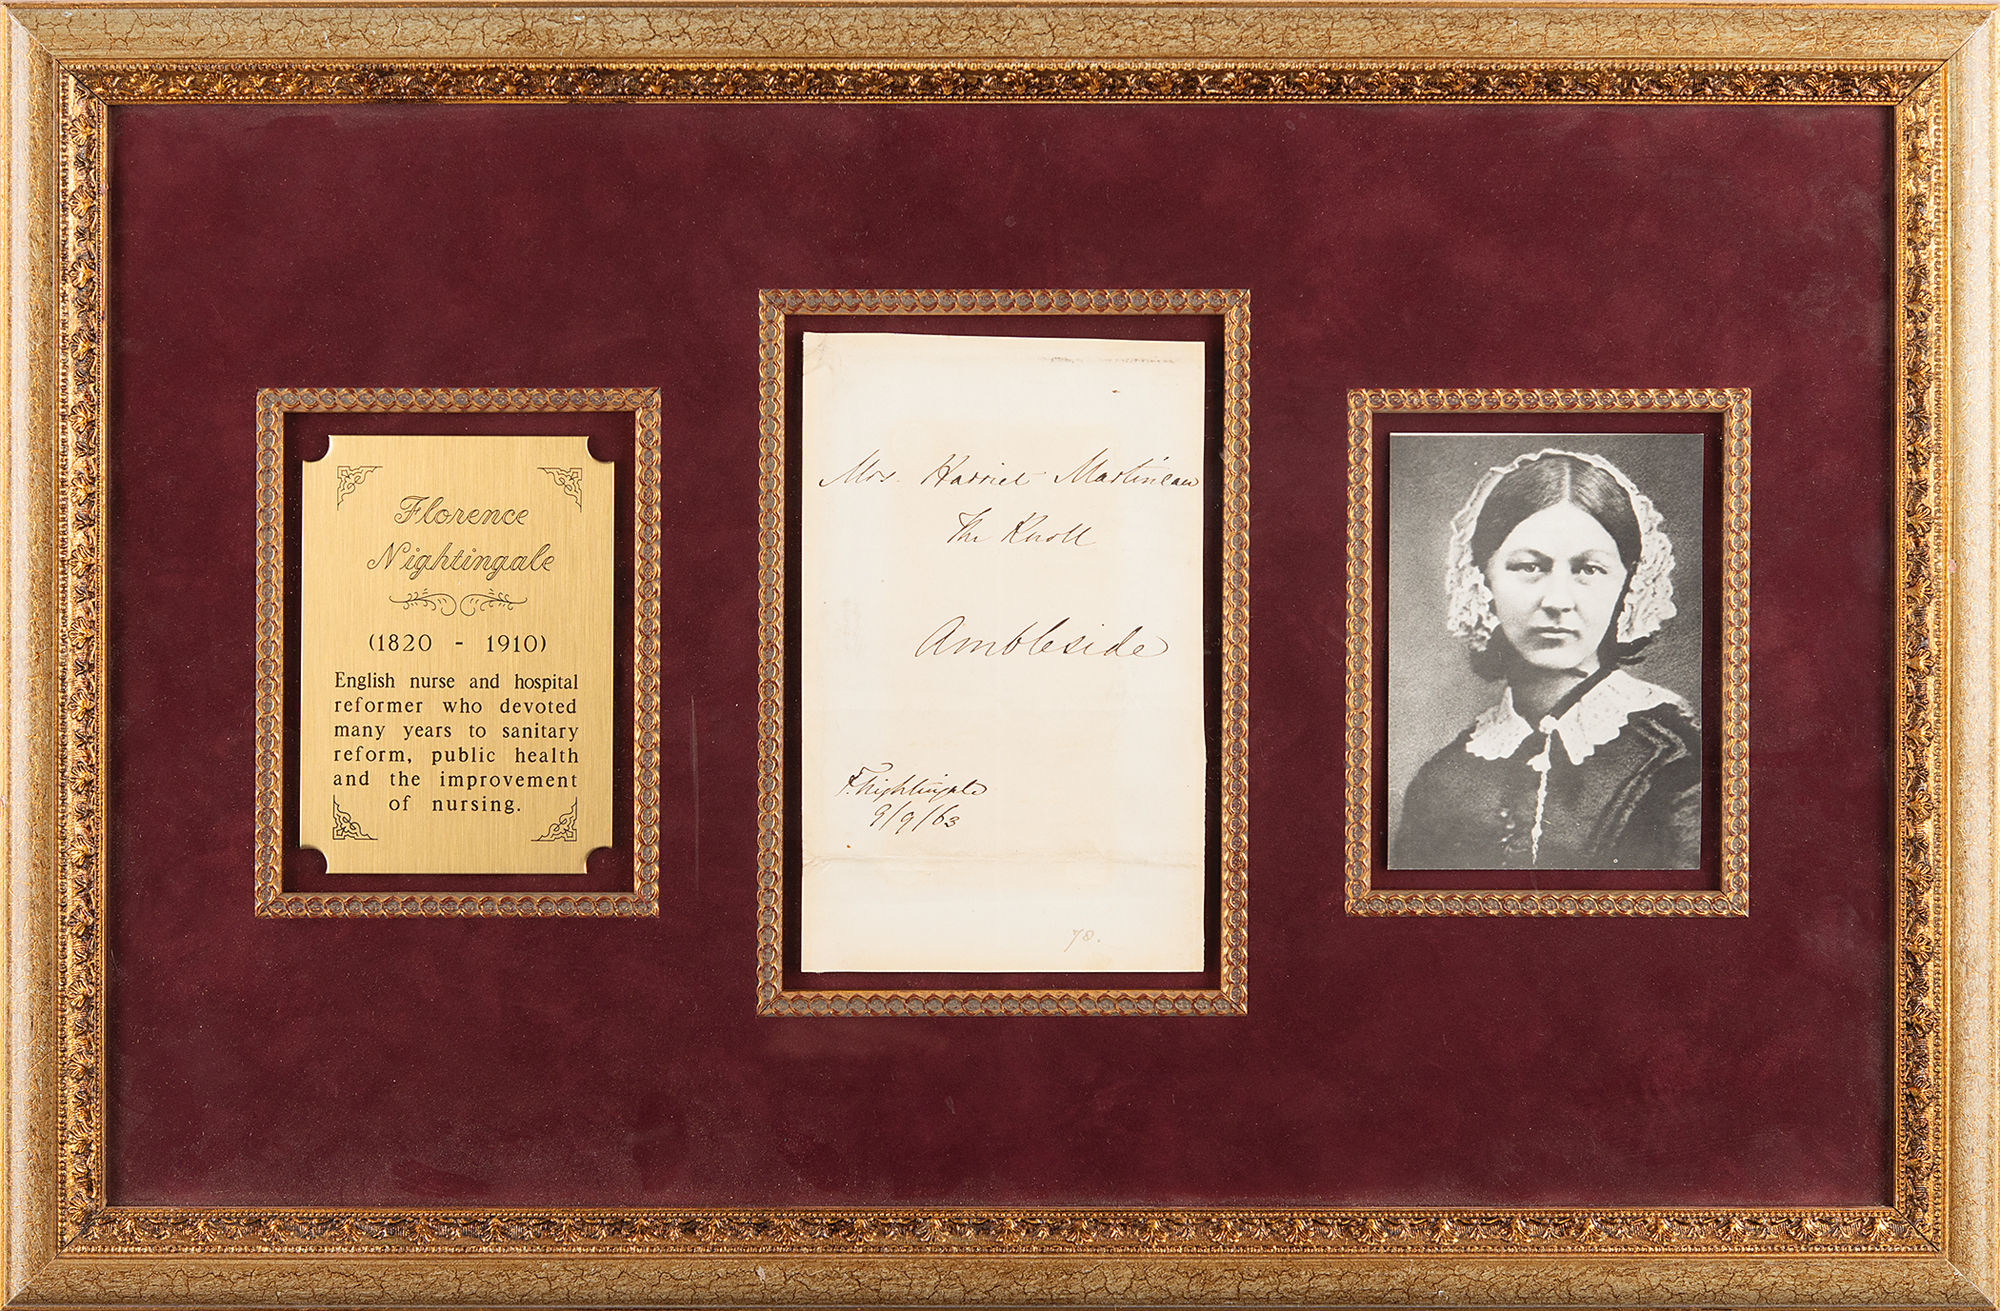 Florence
Nightingale
(1820 - 1910)
English nurse and hospital
reformer who devoted
many years to sanitary
reform, public health
and the improvement
of nursing.
Mrs. Harriet Martineau
The Knoll
Ambleside
F. Nightingale
9/9/63
78.